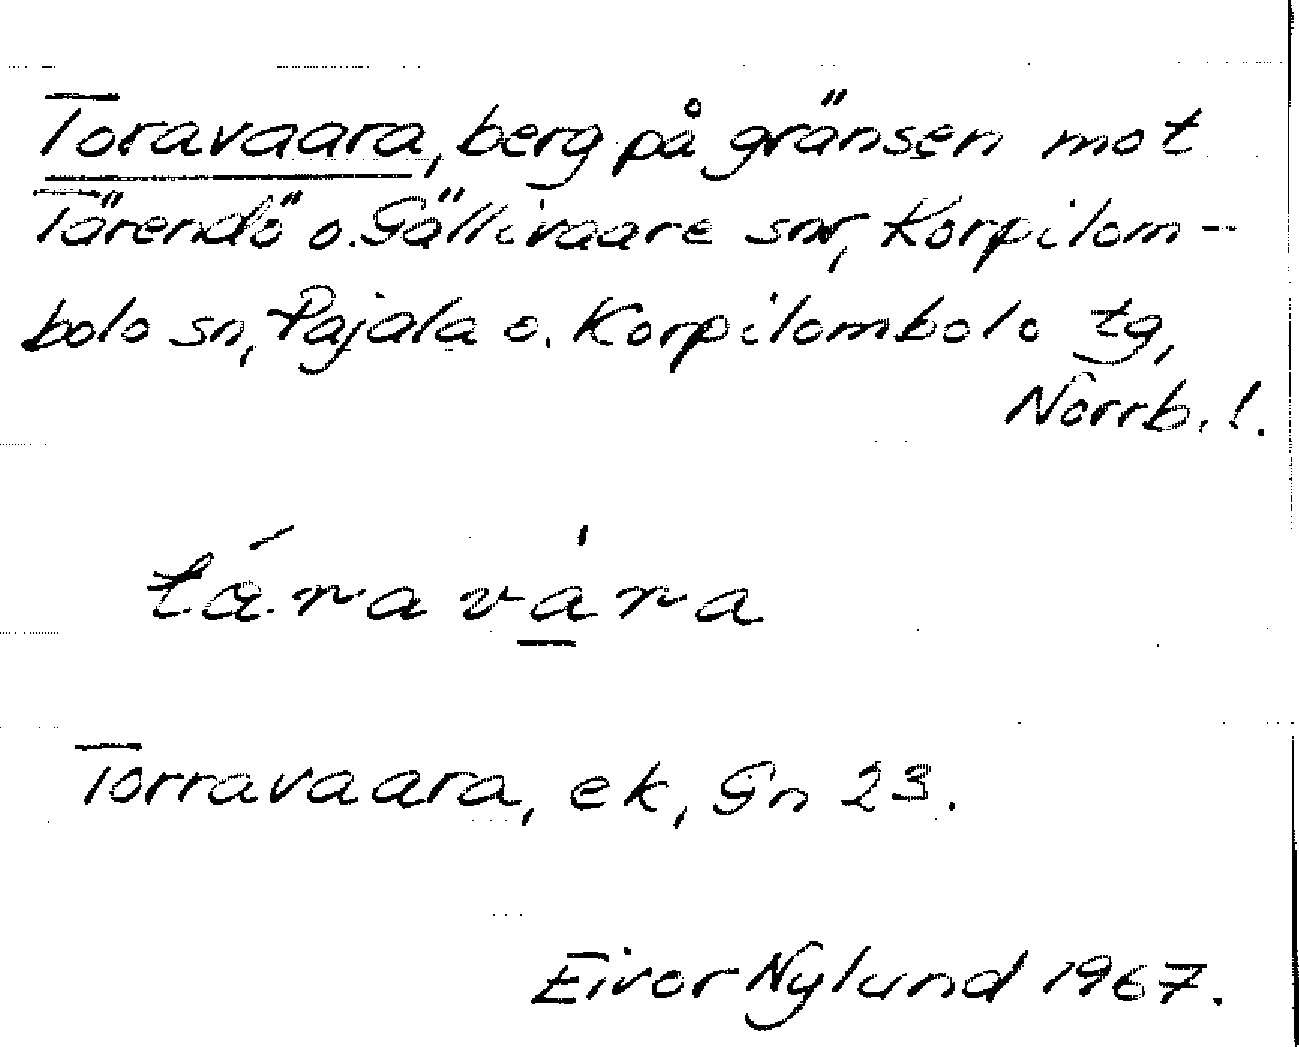 Toravaara, berg på gränsen mot
Tärendö o. Gällivaare snr, Korpilom-
bolo sn, Pajala o. Korpilombolo tg,
Norrb. l.
táravàra
Torravaara, ek, Gn 23.
Eivor Nylund 1967.